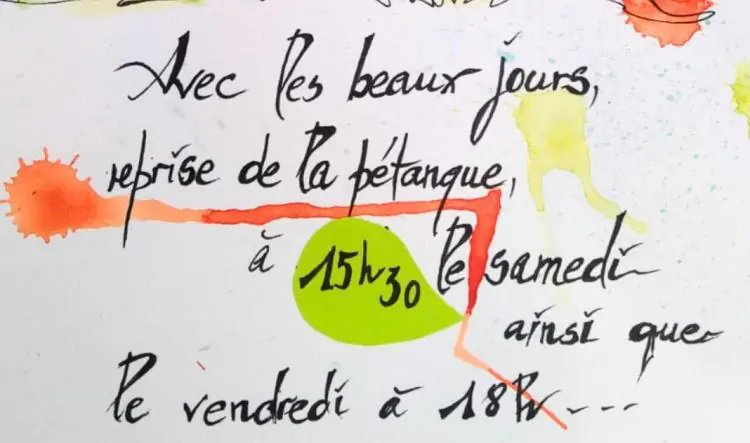 Avec les beaux jours,
reprise de la pétanque,
à 15h30 le samedi
ainsi que
le vendredi à 18h ---